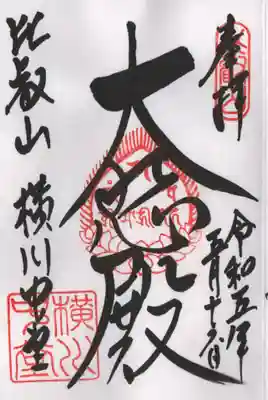 奉拝
令和五年
五月
大悲殿
比叡山 横川中堂
横川
中堂